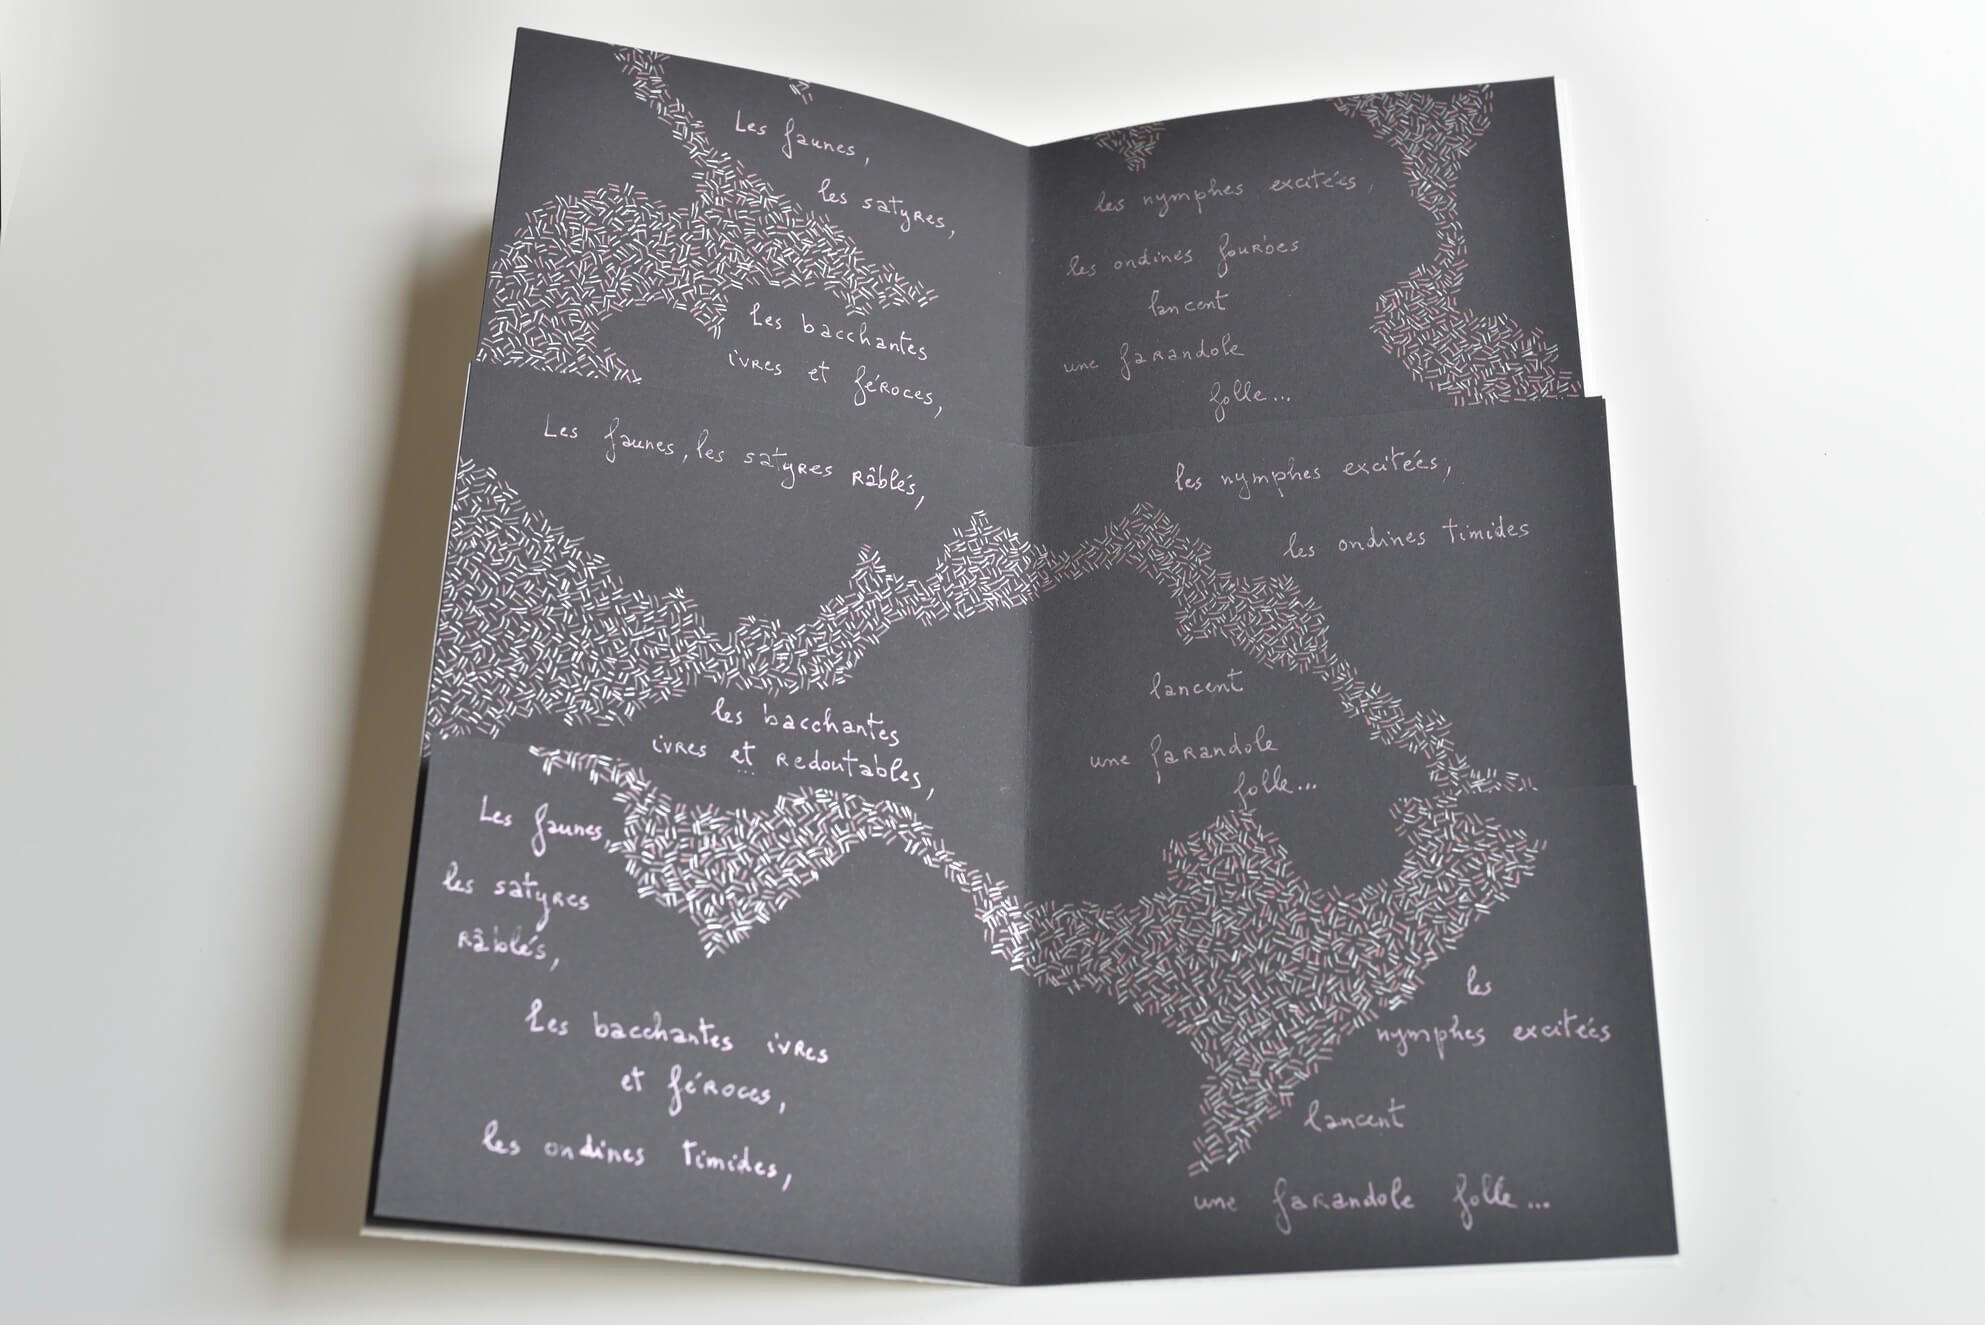 Les faunes,
les satyres,
les bacchantes
ivres et féroces,
les nymphes excitées,
les ondines fourbes
lancent
une farandole
folle...
Les faunes, les satyres râblés,
les bacchantes
ivres et redoutables,
les nymphes excitées,
les ondines timides
lancent
une farandole
folle...
Les faunes,
les satyres
râblés,
les bacchantes ivres
et féroces,
les ondines timides,
les
nymphes excitées
lancent
une farandole folle...